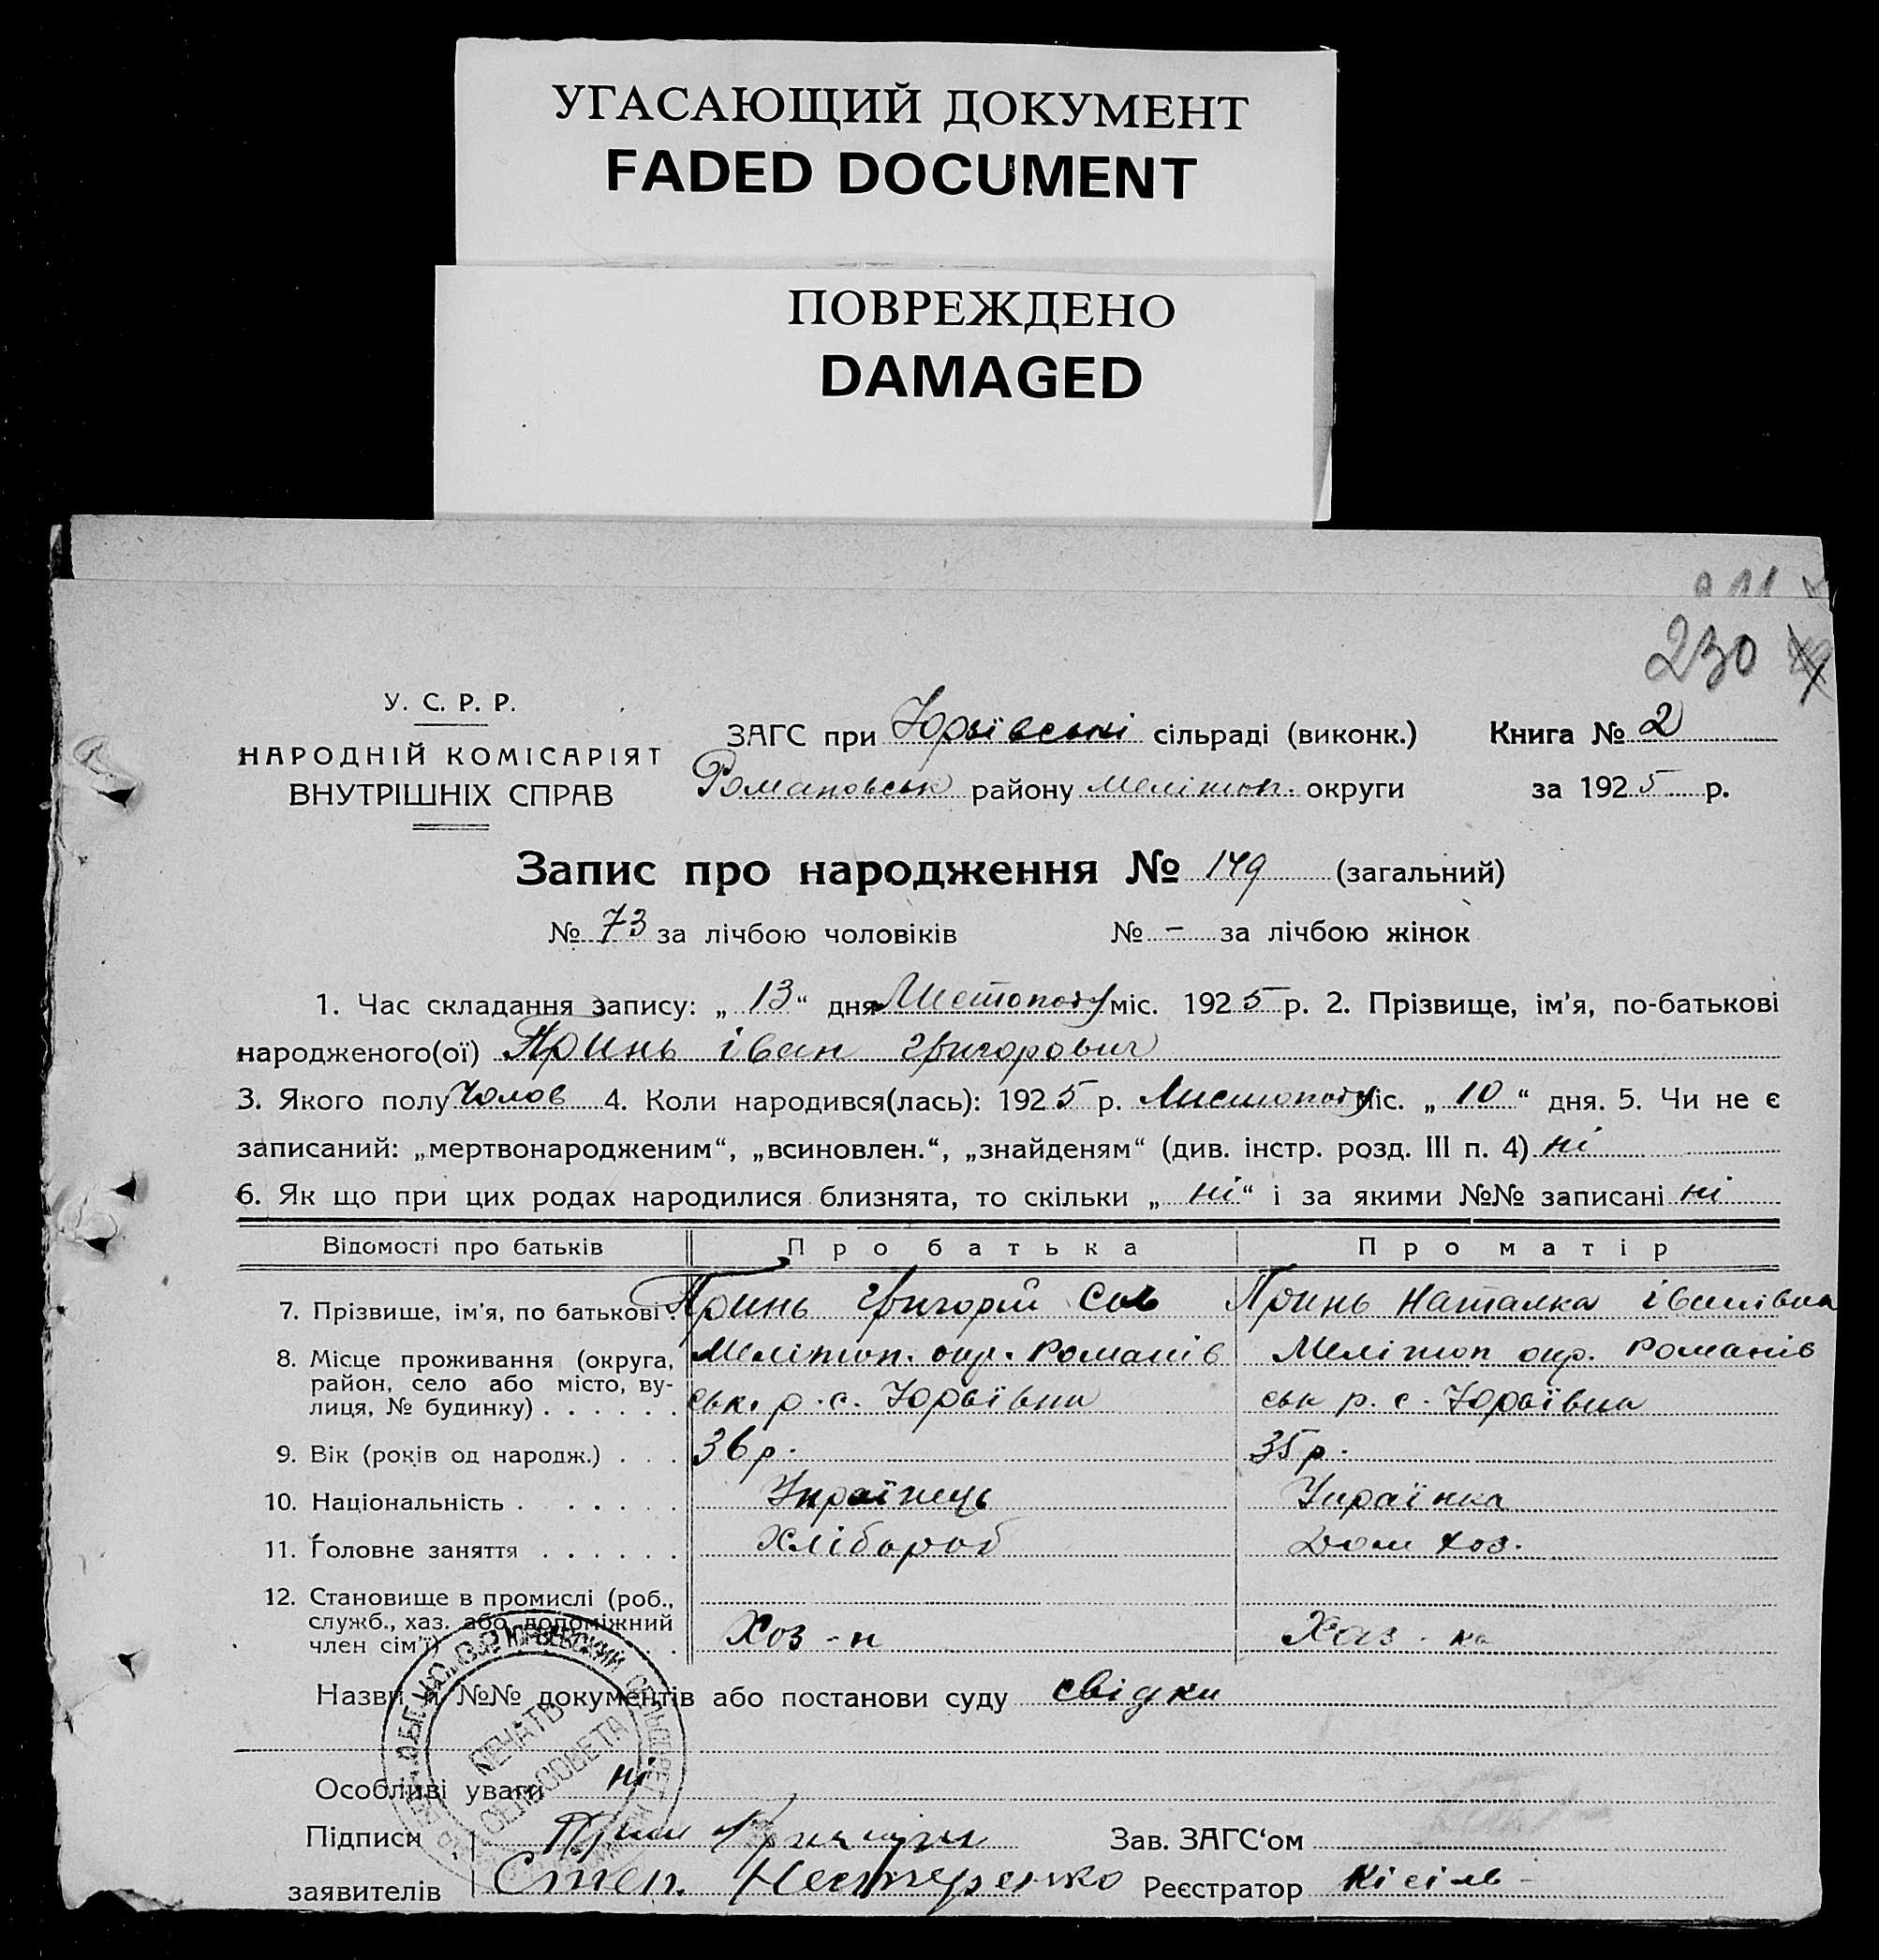 УГАСАЮЩИЙ ДОКУМЕНТ
FADED DOCUMENT
ПОВРЕЖДЕНО
DAMAGED
230
У. С. Р. Р.
НАРОДНІЙ КОМІСАРІЯТ
ВНУТРІШНІХ СПРАВ
ЗАГС при Юрьївські сільраді (виконк.) Книга № 2
Романовськ району Мелітоп. округи за 1925 р.
Запис про народження № 149 (загальний)
№ 73 за лічбою чоловіків № – за лічбою жінок
1. Час складання запису: „ 13 “ дня Листопаду міс. 1925 р. 2. Прізвище, ім’я, по-батькові
народженого(ої) Принь іван григорович
3. Якого полу Чолов 4. Коли народився(лась): 1925 р. Листопаду міс. „ 10 “ дня. 5. Чи не є
записаний: „мертвонародженим“, „всиновлен.“, „знайденям“ (див. інстр. розд. III п. 4) ні
6. Як що при цих родах народилися близнята, то скільки „ ні “ і за якими №№ записані ні
Відомості про батьків Про батька Про матір
7. Прізвище, ім’я, по батькові . Принь григорій Принь Наталка іванівна
8. Місце проживання (округа, Мелітоп. окр. Романів Мелітоп окр. Романів
район, село або місто, ву- ськ. р. с. Юрьївка ськ р. с. Юрьївка
лиця, № будинку) . . . . . .
9. Вік (років од народж.) . . . 36 р. 35 р.
10. Національність . . . . . . Українець Українка
11. Головне заняття . . . . . . Хлібороб Дом хоз.
12. Становище в промислі (роб.,
служб., хаз. або допоміжний Хоз-н Хаз-ка
член сім’ї)
Назви й №№ документів або постанови суду свідки
Особливі уваги ні
ПЕЧАТЬ
СЕЛЬСОВЕТА
Підписи Принь Зав. ЗАГС‘ом
заявителів Степ. Нестеренко Реєстратор Кісіль